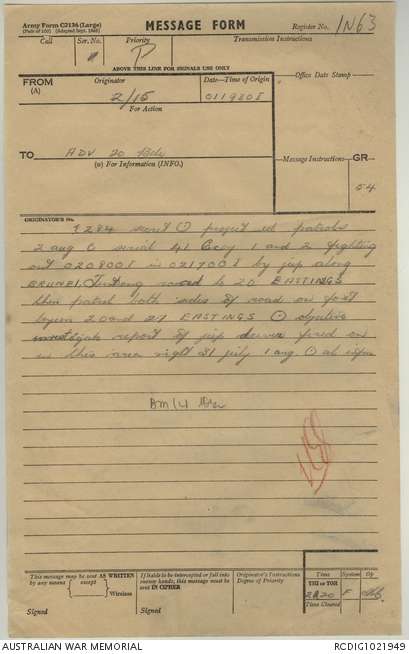 Army Form C2136 (Large)
(Pads of 100) (Adapted Sept. 1942)
MESSAGE FORM
Register No. IN63
Call
Ser. No.
Priority
Transmission Instructions
ABOVE THIS LINE FOR SIGNALS USE ONLY
FROM
(A)
Originator
2/15
Date—Time of Origin
011950I
Office Date Stamp
For Action
TO
ADV 20 Bde
(W) For Information (INFO.)
Message Instructions
GR
54
ORIGINATOR'S No.
secret projected patrols
2 aug serial 41 Coy 1 and 2 fighting
out 020800I in 021700I by jeep along
BRUNEI road to 20 EASTINGS
then patrol both sides of road on foot
20 and 27 EASTINGS objective
investigate report of jeep driver fired on
in this area night 31 july 1 aug. all infm
BM/LI
This message may be sent AS WRITTEN
by any means except Wireless
If liable to be intercepted or fall into
enemy hands, this message must be
sent IN CIPHER
Originator's Instructions
Degree of Priority
Time
System
Op
THI or TOR
2120
F
Time Cleared
Signed
Signed
AUSTRALIAN WAR MEMORIAL
RCDIG1021949